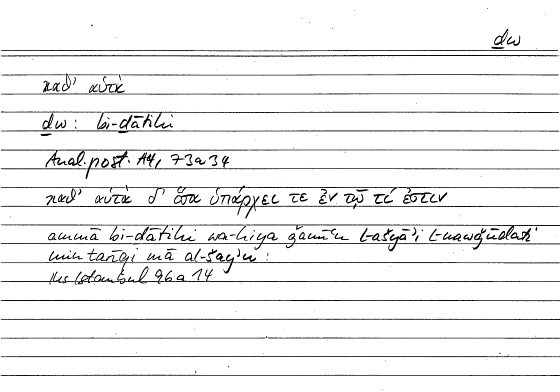 ḏw
καθ' αὑτά
ḏw: bi-ḏātihi
Anal. post. A4, 73a34
καθ' αὑτὰ δ' ὅσα ὑπάρχει τε ἐν τῷ τί ἐστιν
ammā bi-ḏātihi wa-hiya ǧamīʿu l-ašyāʾi l-mawǧūdati
min mā al-šayʾu:
Ms Istanbul 96a14